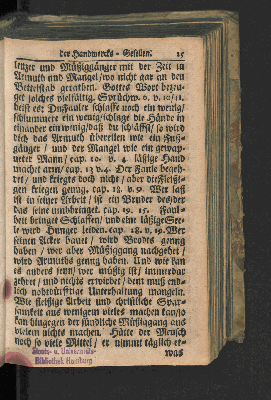 der Handwercks-Gesellen. 25
lentzer und Müßiggänger mit der Zeit in
Armuth und Mangel / wo nicht gar an den
Bettelstab gerathen. Gottes Wort bezeu-
get solches vielfältig. Sprüchw. 6. v. 10/11.
heist es: Du Fauler schlaffe noch ein wenig/
schlummere ein wenig/schlage die Hände in
einander ein wenig/daß du schläffst/ so wird
dich das Armuth übereilen wie ein Fuß-
gänger / und der Mangel wie ein gewap-
neter Mann / cap. 10. v. 4. läßige Hand
machet arm / cap. 13 v. 4. Der Faule begeh-
ret / und kriegts doch nicht / aber die Fleißi-
gen kriegen genug. cap. 18. v. 9. Wer laß
ist in seiner Arbeit / ist ein Bruder des/der
das seine umbbringet. cap. 19. 15. Faul-
heit bringet Schlaffen / und eine läßige See-
le wird Hunger leiden. cap. 28. v. 19. Wer
seinen Acker bauet / wird Brodts genug
haben / wer aber Müßiggang nachgehet /
wird Armuths genug haben. Und wie kan
es anders seyn / wer müßig ist / immerdar
zehret / und nichts erwirbet / dem muß end-
lich nohtdürfftige Unterhaltung mangeln.
Wie fleißige Arbeit und christliche Spar-
samkeit aus wenigem vieles machen kan/so
kan hingegen der sündliche Müßiggang aus
vielem nichts machen. Hätte der Mensch
noch so viele Mittel / er nimmt täglich et-
was
Staats- u. Universitäts-
Bibliothek Hamburg